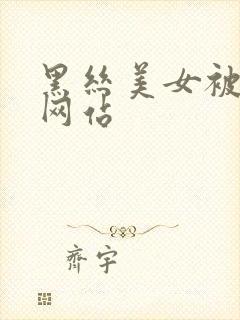 黑丝美女被
网站
齐宇